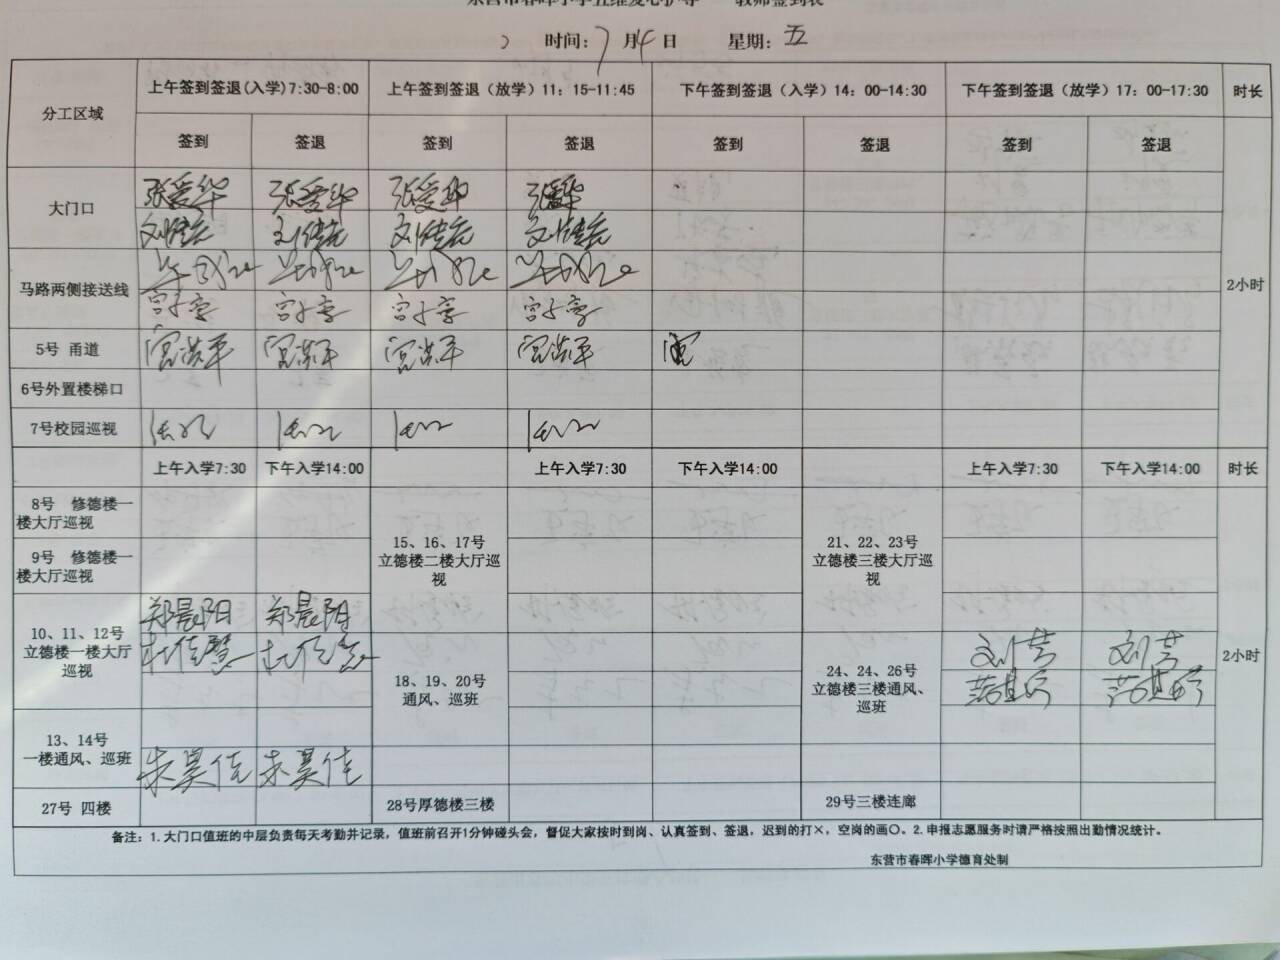 时间：7月4日 星期：五
分工区域 上午签到签退(入学)7:30-8:00 上午签到签退（放学）11：15-11:45 下午签到签退（入学）14：00-14:30 下午签到签退（放学）17：00-17:30 时长
签到 签退 签到 签退 签到 签退 签到 签退
大门口 张爱华 张爱华 张爱华 张爱华
马路两侧接送线
宫子亭 宫子亭 宫子亭 宫子亭
2小时
5号 甬道 宫洪平 宫洪平 宫洪平 宫洪平
6号外置楼梯口
7号校园巡视
上午入学7:30 下午入学14:00 上午入学7:30 下午入学14:00 上午入学7:30 下午入学14:00 时长
8号 修德楼一
楼大厅巡视
9号 修德楼一
楼大厅巡视
15、16、17号
立德楼二楼大厅巡
视
21、22、23号
立德楼三楼大厅巡
视
郑晨阳 郑晨阳
10、11、12号
立德楼一楼大厅
巡视
杜佳慧 杜佳慧
18、19、20号
通风、巡班
24、24、26号
立德楼三楼通风、
巡班
刘芳 刘芳
2小时
13、14号
一楼通风、巡班
朱昊佳 朱昊佳
27号 四楼 28号厚德楼三楼 29号三楼连廊
备注：1.大门口值班的中层负责每天考勤并记录，值班前召开1分钟碰头会，督促大家按时到岗、认真签到、签退，迟到的打×，空岗的画〇。2.申报志愿服务时请严格按照出勤情况统计。
东营市春晖小学德育处制